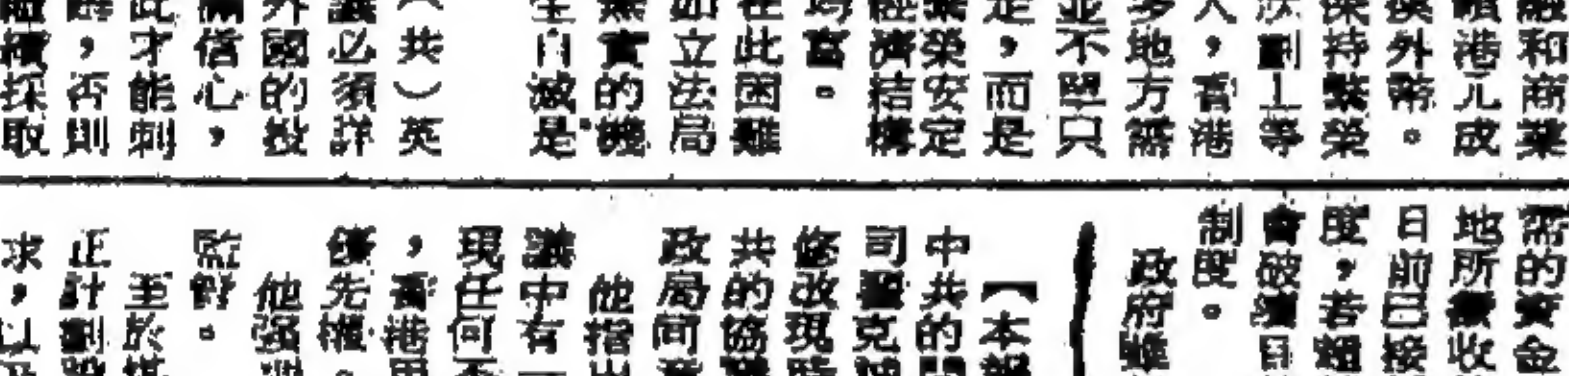 融和商業
港元成
換外幣。
保持繁榮
劃上等
人，香港
多地方需
並不單只
是，而是
繁榮安定
經濟結構
均富。
在此困難
如立法局
無實的機
生自滅是
（共）英
議必須詳
外國的投
信心，
此才能刺
，否則
採取
需的資金
地所積收
日前已接
度，若
會破壞
制度。
政府
【本報
中共的
司
修改現時
共的協
政局同意
他指出
議中有一
現任何
，香港
優先權。
他强
監督。
至於
正計劃
求，以及